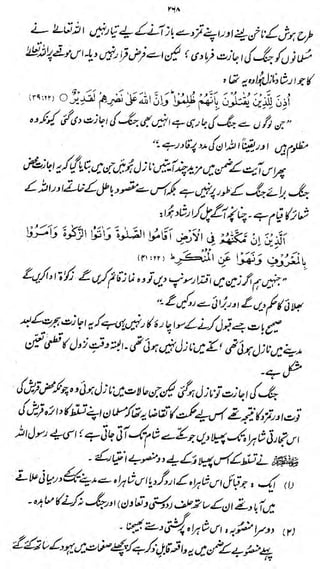 ۲۶۸
طرح ہوش کے ناخن لینے اور اپنے تمرد سے باز آنے کے لیے تیار نہیں اللہ تعالیٰ نے
مسلمانوں کو جنگ کی اجازت فرما دی؛ لیکن اسے فرض قرار نہیں دیا۔ اس موقعے پر اللہ تعالیٰ
کا جو ارشاد نازل ہوا وہ یہ تھا ۔
اُذِنَ لِلَّذِيْنَ يُقٰتَلُوْنَ بِاَنَّهُمْ ظُلِمُوْا وَاِنَّ اللّٰهَ عَلٰى نَصْرِهِمْ لَقَدِيْرٌ ○ (۳۹:۲۲)
”جن لوگوں سے جنگ کی جا رہی ہے انہیں بھی جنگ کی اجازت دی گئی کیونکہ وہ
مظلوم ہیں اور یقیناً اللہ ان کی مدد پر قادر ہے۔“
پھر اس آیت کے ضمن میں مزید چند آیتیں نازل ہوئیں جن میں بتایا گیا کہ یہ اجازت محض
جنگ برائے جنگ کے طور پر نہیں ہے بلکہ اس سے مقصود باطل کے خاتمے اور اللہ کے
شعائر کا قیام ہے۔ چنانچہ آگے چل کر ارشاد ہوا:
اَلَّذِيْنَ اِنْ مَّكَّنّٰهُمْ فِى الْاَرْضِ اَقَامُوا الصَّلٰوةَ وَاٰتَوُا الزَّكٰوةَ وَاَمَرُوْا
بِالْمَعْرُوْفِ وَنَهَوْا عَنِ الْمُنْكَرِ ؕ (۴۱:۲۲)
”جنہیں ہم اگر زمین میں اقتدار سونپ دیں تو وہ نماز قائم کریں گے زکوٰۃ ادا کریں گے
بھلائی کا حکم دیں گے اور برائی سے روکیں گے۔“
صحیح بات جسے قبول کرنے کے سوا چارۂ کار نہیں یہی ہے کہ یہ اجازت ہجرت کے بعد
مدینے میں نازل ہوئی تھی؛ مکے میں نازل نہیں ہوئی تھی۔ البتہ وقتِ نزول کا قطعی تعین
مشکل ہے۔
جنگ کی اجازت تو نازل ہو گئی لیکن جن حالات میں نازل ہوئی وہ چونکہ محض قریش کی
قوت اور تمرد کا نتیجہ تھے اس لیے حکمت کا تقاضا یہ تھا کہ مسلمان اپنے تسلط کا دائرہ قریش کی
اس تجارتی شاہراہ تک پھیلا دیں جو مکے سے شام تک آتی جاتی ہے؛ اسی لیے رسول اللہ
ﷺ نے تسلط کے اس پھیلاؤ کے لیے دو منصوبے اختیار کئے۔
(۱) ایک: جو قبائل اس شاہراہ کے ارد گرد یا اس شاہراہ سے مدینے تک کے درمیانی علاقے
میں آباد تھے ان کے ساتھ حلف (دوستی و تعاون) اور جنگ نہ کرنے کا معاہدہ۔
(۲) دوسرا منصوبہ: اس شاہراہ پر گشتی دستے بھیجنا۔
پہلے منصوبے کے ضمن میں یہ واقعہ قابلِ ذکر ہے کہ پچھلے صفحات میں یہود کے ساتھ کئے گئے